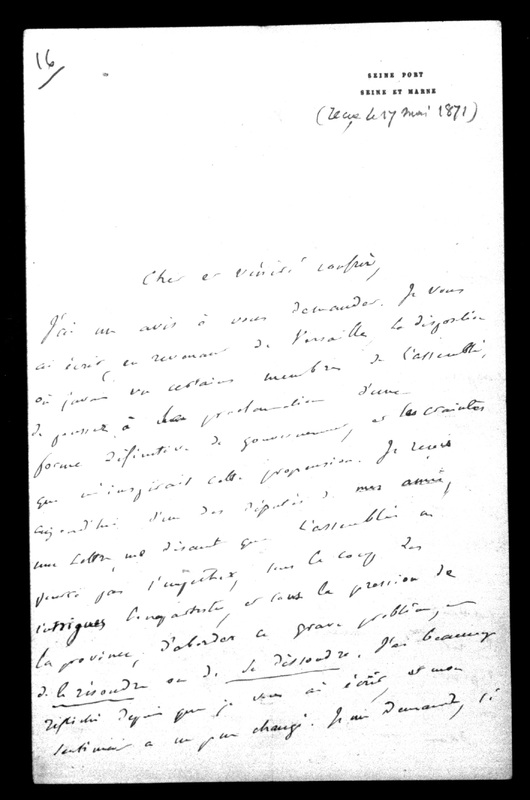 16
SEINE PORT
SEINE ET MARNE
(reçue le 17 mai 1871)
Cher et vénéré confrère,
J'ai un avis à vous demander. Je vous
ai écrit, en revenant de Versailles, la disposition
où j'avais vu certains membres de l'assemblée,
de pousser à la proclamation d'une
forme définitive de gouvernement, et les craintes
que m'inspirait cette propension. Je reçois
aujourd'hui d'un des députés de mes amis,
une lettre, me disant que l'assemblée ne
pourra pas s'empêcher, sous le coup des
intrigues bonapartistes, et sous la pression de
la province, d'aborder ce grave problème,
de le résoudre ou de se dissoudre. J'ai beaucoup
réfléchi depuis que je vous ai écrit, et mon
sentiment a un peu changé. Je me demande, si